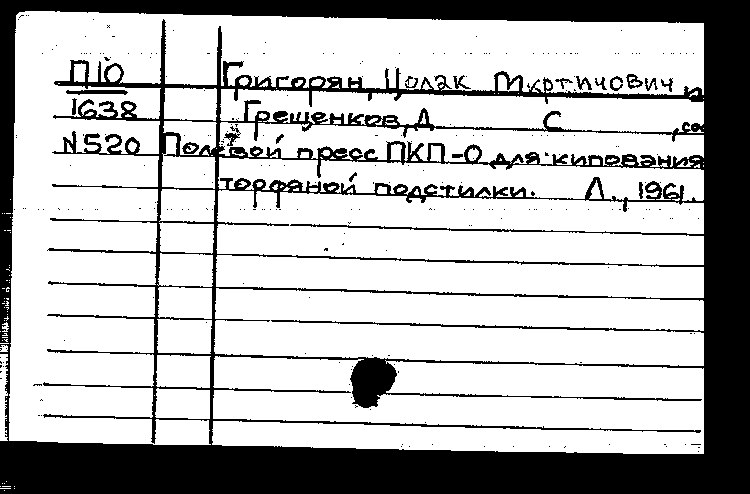 П10 Григорян, Цолак Мкртичович и
1638 Грещенков, Д С , сос
N520 Полевой пресс ПКП-0 для кипования
торфяной подстилки. Л., 1961.